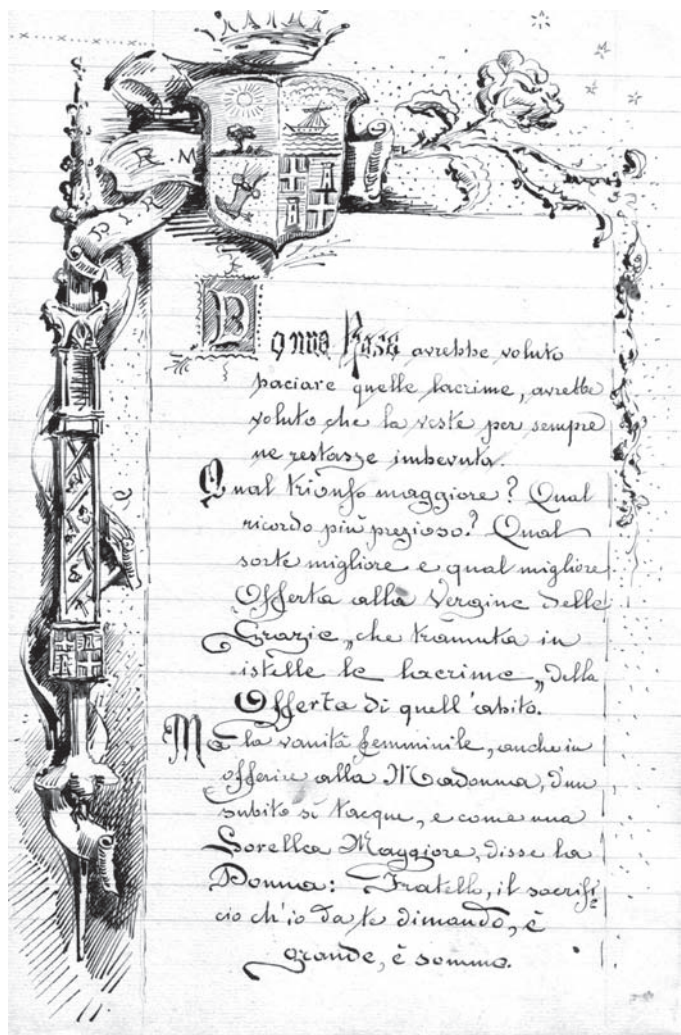 R M
Donna Rosa avrebbe voluto
baciare quelle lacrime, avrebbe
voluto che la veste per sempre
ne restasse imbevuta.
Qual trionfo maggiore? Qual
ricordo più prezioso? Qual
sorte migliore e qual migliore
Offerta alla Vergine delle
Grazie „che tramuta in
istelle le lacrime„ della
Offerta di quell'abito.
Ma la vanità femminile, anche in
offerire alla Madonna, d'un
subito si tacque, e come una
Sorella Maggiore, disse la
Donna: Fratello, il sacrifi=
cio ch'io da te dimando, è
grande, è sommo.